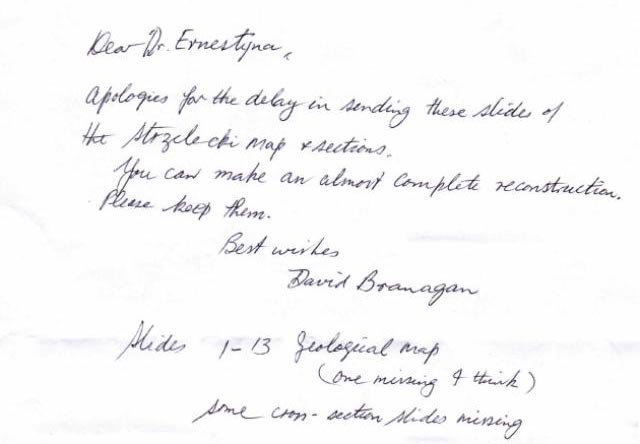 Dear Dr. Ernestyna,
Apologies for the delay in sending these slides of
the Strzelecki map & sections.
You can make an almost complete reconstruction.
Please keep them.
Best wishes
David Branagan
Slides 1-13 Geological map
(one missing I think)
some cross-section slides missing